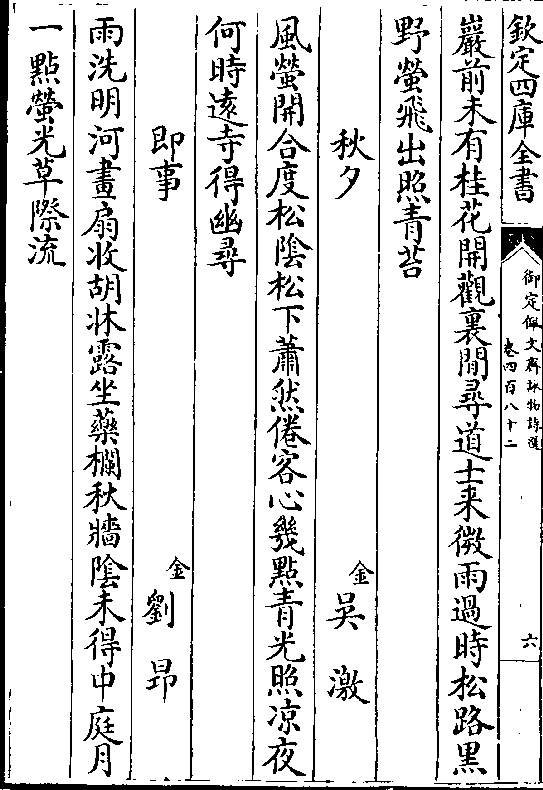 欽定四庫全書
御定佩文齋詠物詩選
卷四百八十二
六
巖前未有桂花開觀裏閒尋道士来微雨過時松路黑
野螢飛出照青苔
秋夕
金
吳激
風螢開合度松陰松下蕭然倦客心幾點青光照凉夜
何時遠寺得幽尋
即事
金
劉昂
雨洗明河畫扇收胡牀露坐藥欄秋牆陰未得中庭月
一點螢光草際流